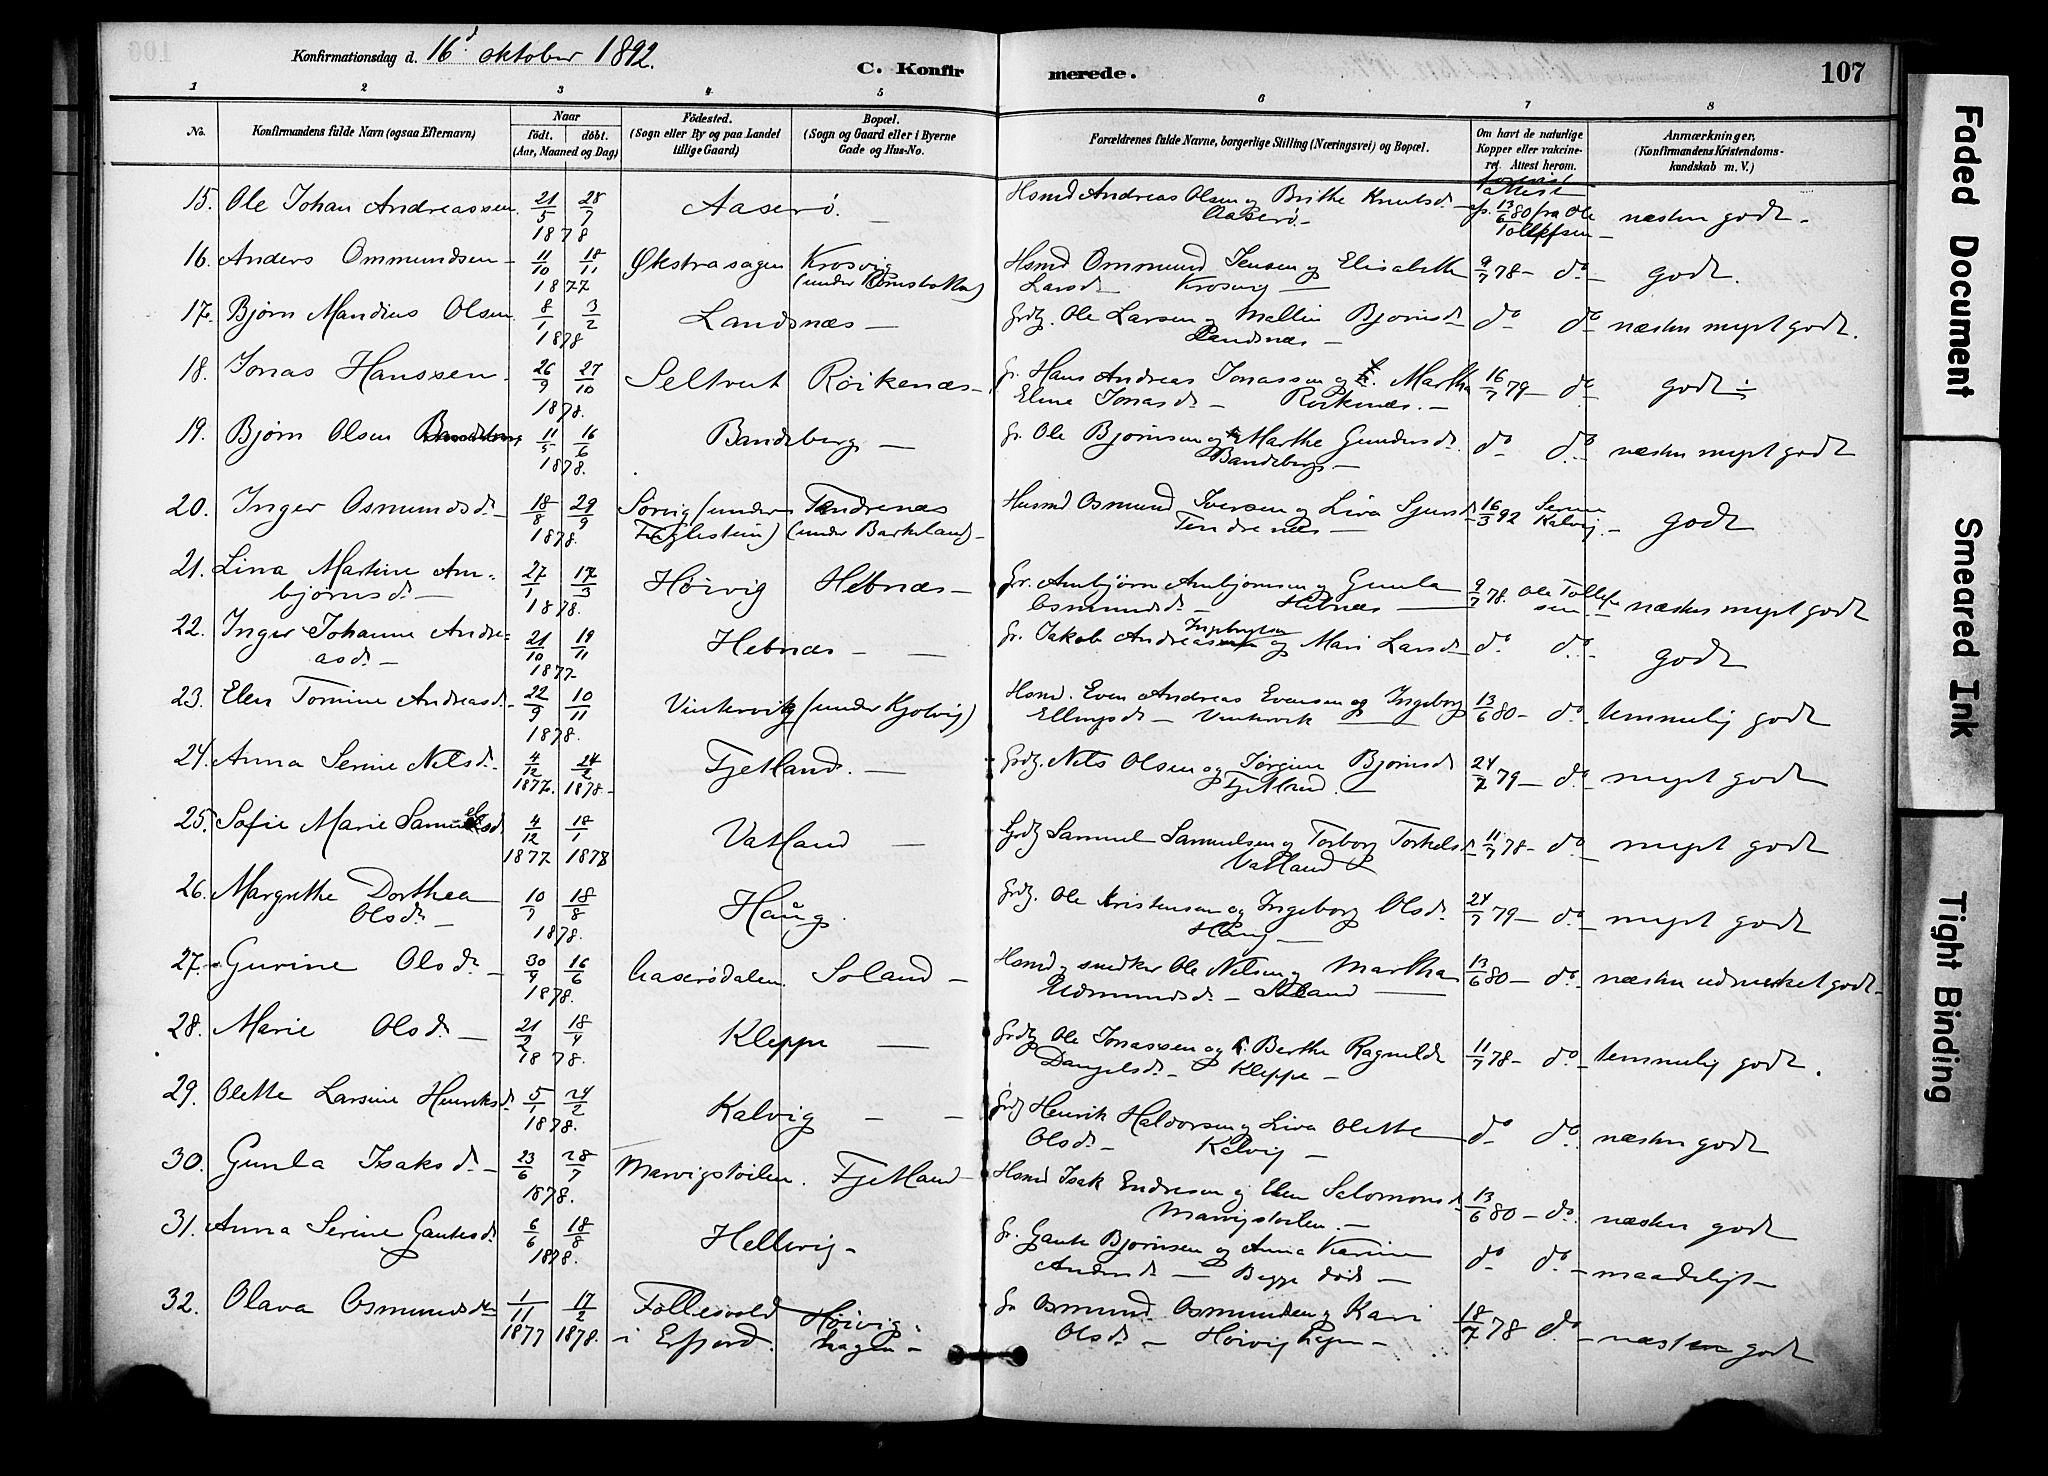 Konfirmationsdag d. 16d oktober 1892.
C. Konfir merede.
107
1 2 3 4 5 6 7 8
No.
Konfirmandens fulde Navn (ogsaa Efternavn)
Naar
födt. döbt.
(Aar, Maaned og Dag)
Födested.
(Sogn eller By og paa Landet
tillige Gaard)
Bopæl.
(Sogn og Gaard eller i Byerne
Gade og Hus-No.
Forældrenes fulde Navne, borgerlige Stilling (Næringsvei) og Bopæl.
Om havt de naturlige
Kopper eller vakcine-
ret. Attest herom.
Anmærkninger.
(Konfirmandens Kristendoms-
kundskab m. V.)
15. Ole Johan Andreassen 21/5 28/7 1878 Aaserö. — Hsmd Andreas Olsen og Brithe Knutsd. Aaserö. — attest 13/6 80 fra Ole Tollefsen — næsten godt —
16. Anders Ommundsen — 11/10 18/11 1877 Økstrasagen Krosvig Hsmd Ommund Jensen og Elisabeth Larsd. Krosvig — 9/7 78 — do — godt.
17. Bjørn Mandius Olsen 8/1 3/2 1878 Landsnæs — Grdbr. Ole Larsen og Mallin Bjørnsd. Landsnæs — do do næsten meget godt.
18. Jonas Hanssen 26/9 27/10 1878. Seltveit Röikenæs — Gr. Hans Andreas Jonassen og Martha Eline Jonasd. — Röikenæs. — 16/7 79 — do — godt
19. Bjørn Olsen 11/5 16/6 1878. Bandeberg — Gr. Ole Bjørnsen og Marthe Gundersd. Bandeberg — do do næsten meget godt
20. Inger Osmundsd. — 18/8 29/9 1878. Sörvig (under Fuglestein) Tendrenæs (under Barkeland) — Husmd Osmund Iversen og Liva Sjursd. Tendrenæs — 16/3 92 Serine Kalvig. — godt
21. Lina Martine Arn-
bjørnsd. — 27/1 17/3 1878. Höivig Hebnæs — Gr. Arnbjørn Arnbjørnsen og Gunla Osmundsd. — Hebnæs — 9/7 78. Ole Tollefsen — næsten meget godt
22. Inger Johanne Andre-
asd. — 21/10 19/11 1877 Hebnæs — — Gr. Jakob Andreas Ingebregtsen og Mari Larsd. do do — godt
23. Elen Tomine Andreasd. 22/9 10/11 1878. Vintervik (under Kjølvig) Hsmd. Even Andreas Evensen og Ingeborg Ellingsd. — Vintervik — 13/6 80 — do temmelig godt
24. Anna Serine Nelsd. 4/12 1877. 24/2 1878 — Fjetland. — Grdbr. Nels Olsen og Jørgine Bjørnsd. Fjetland. — 24/7 79 — do — meget godt
25. Sofie Marie Samuelsd. 4/12 1877 18/1 1878 Vatland — Grdbr Samuel Samuelsen og Torborg Torkelsd. Vatland 11/7 78 — do — meget godt
26. Margrethe Dorthea
Olsd. — 10/7 18/8 1878. Haug. Grdbr. Ole Kristensen og Ingeborg Olsd. Haug — 24/7 79 — do — meget godt
27. Gurine Olsd. — 30/4 16/6 1878. Aaserödalen. Soland — Hsmd og snedker Ole Nelsen og Martha Udmundsd. — Soland — 13/6 80 — do næsten udmerket godt —
28. Marie Olsd. — 21/2 18/4 1878. Kleppe — Grdbr Ole Jonassen og Berthe Ragnilde Danjelsd. — Kleppe — 11/7 78 — do temmelig godt.
29. Olette Larsine Henriksd. 5/1 24/2 1878. Kalvig — — Grdbr Henrik Haldorsen og Liva Olette Olsd. — Kalvig — do do. næsten godt
30. Gunla Isaksd. — 23/6 28/7 1878. Marvigstöilen. Fjetland — Hsmd Isak Endresen og Elen Salomonsd. Marvigstöilen. — 13/6 80 — do. næsten godt
31. Anna Serine Gautesd. 6/6 18/8 1878. Hellvig — Gr. Gaute Bjørnsen og Anna Karine Andersd. — Begge död — do do — maadeligt —
32. Olava Osmundsdtr 1/11 1877 17/2 1878. Follesvold i Erfjord. Höivig-
hagen — Gr Osmund Osmundsen og Kari Olsd. — Höivighagen — 18/7 78 do — næsten godt
Faded Document
Smeared Ink
Tight Binding